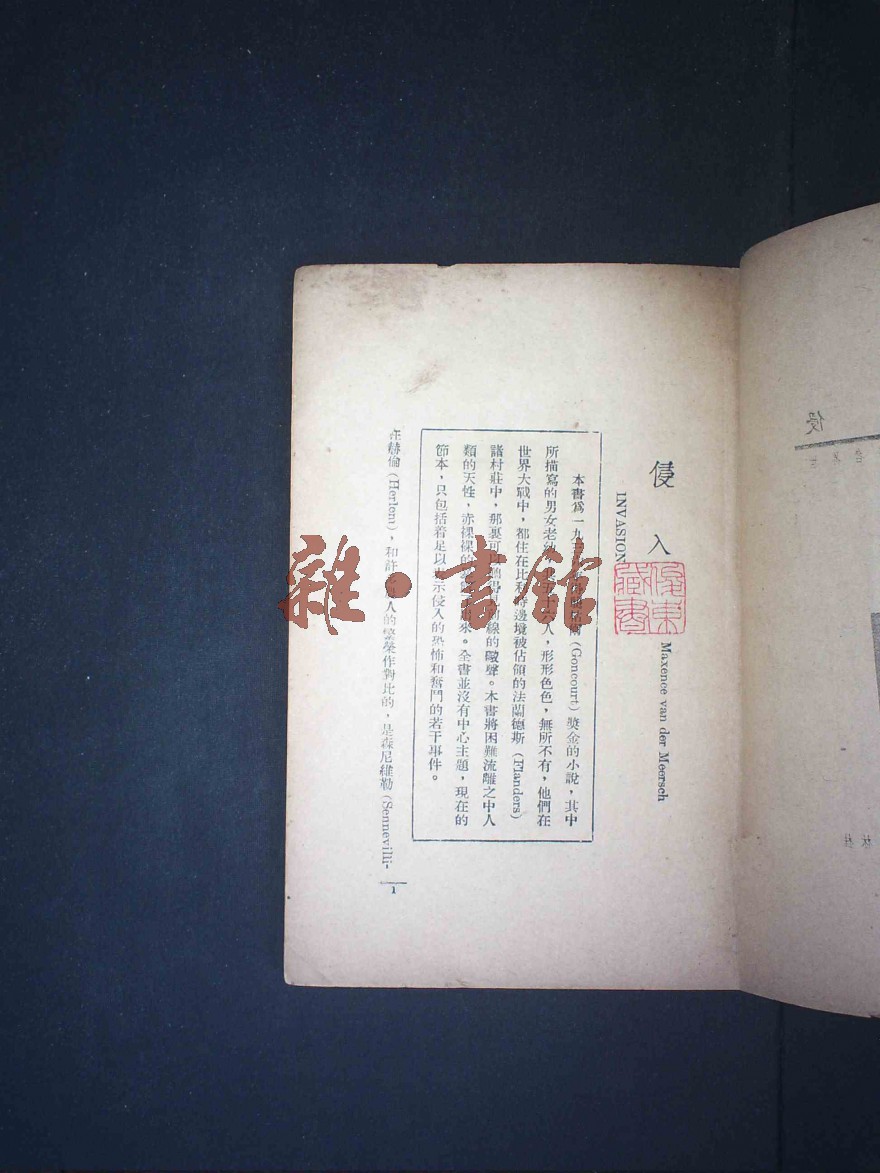 侵入
INVASION
Maxence van der Meersch
本書爲一九三 (Goncourt) 獎金的小說，其中
所描寫的男女老 人，形形色色，無所不有，他們在
世界大戰中，都住在比利時邊境被佔領的法蘭德斯 (Flanders)
諸村莊中，那裏可以聽得 前線的礮聲。本書將困難流離之中人
類的天性，赤裸裸的 出來。全書並沒有中心主題，現在的
節本，只包括着足以表示侵入的恐怖和奮鬥的若干事件。
在赫倫 (Herlem)，和許多 人的繁榮作對比的，是森尼維勒 (Sennevilli-
1
雜·書館
藏書
侵